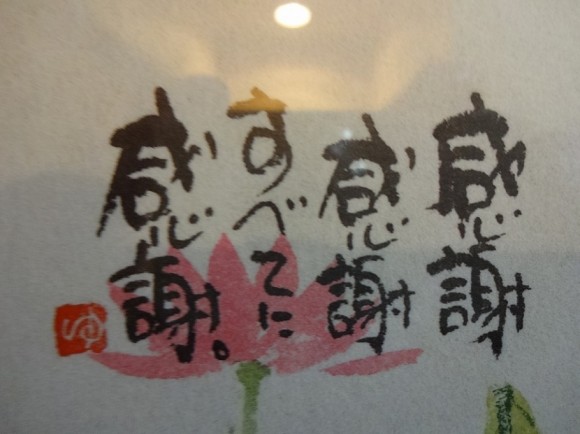 感謝
感謝
すべてに
感謝。